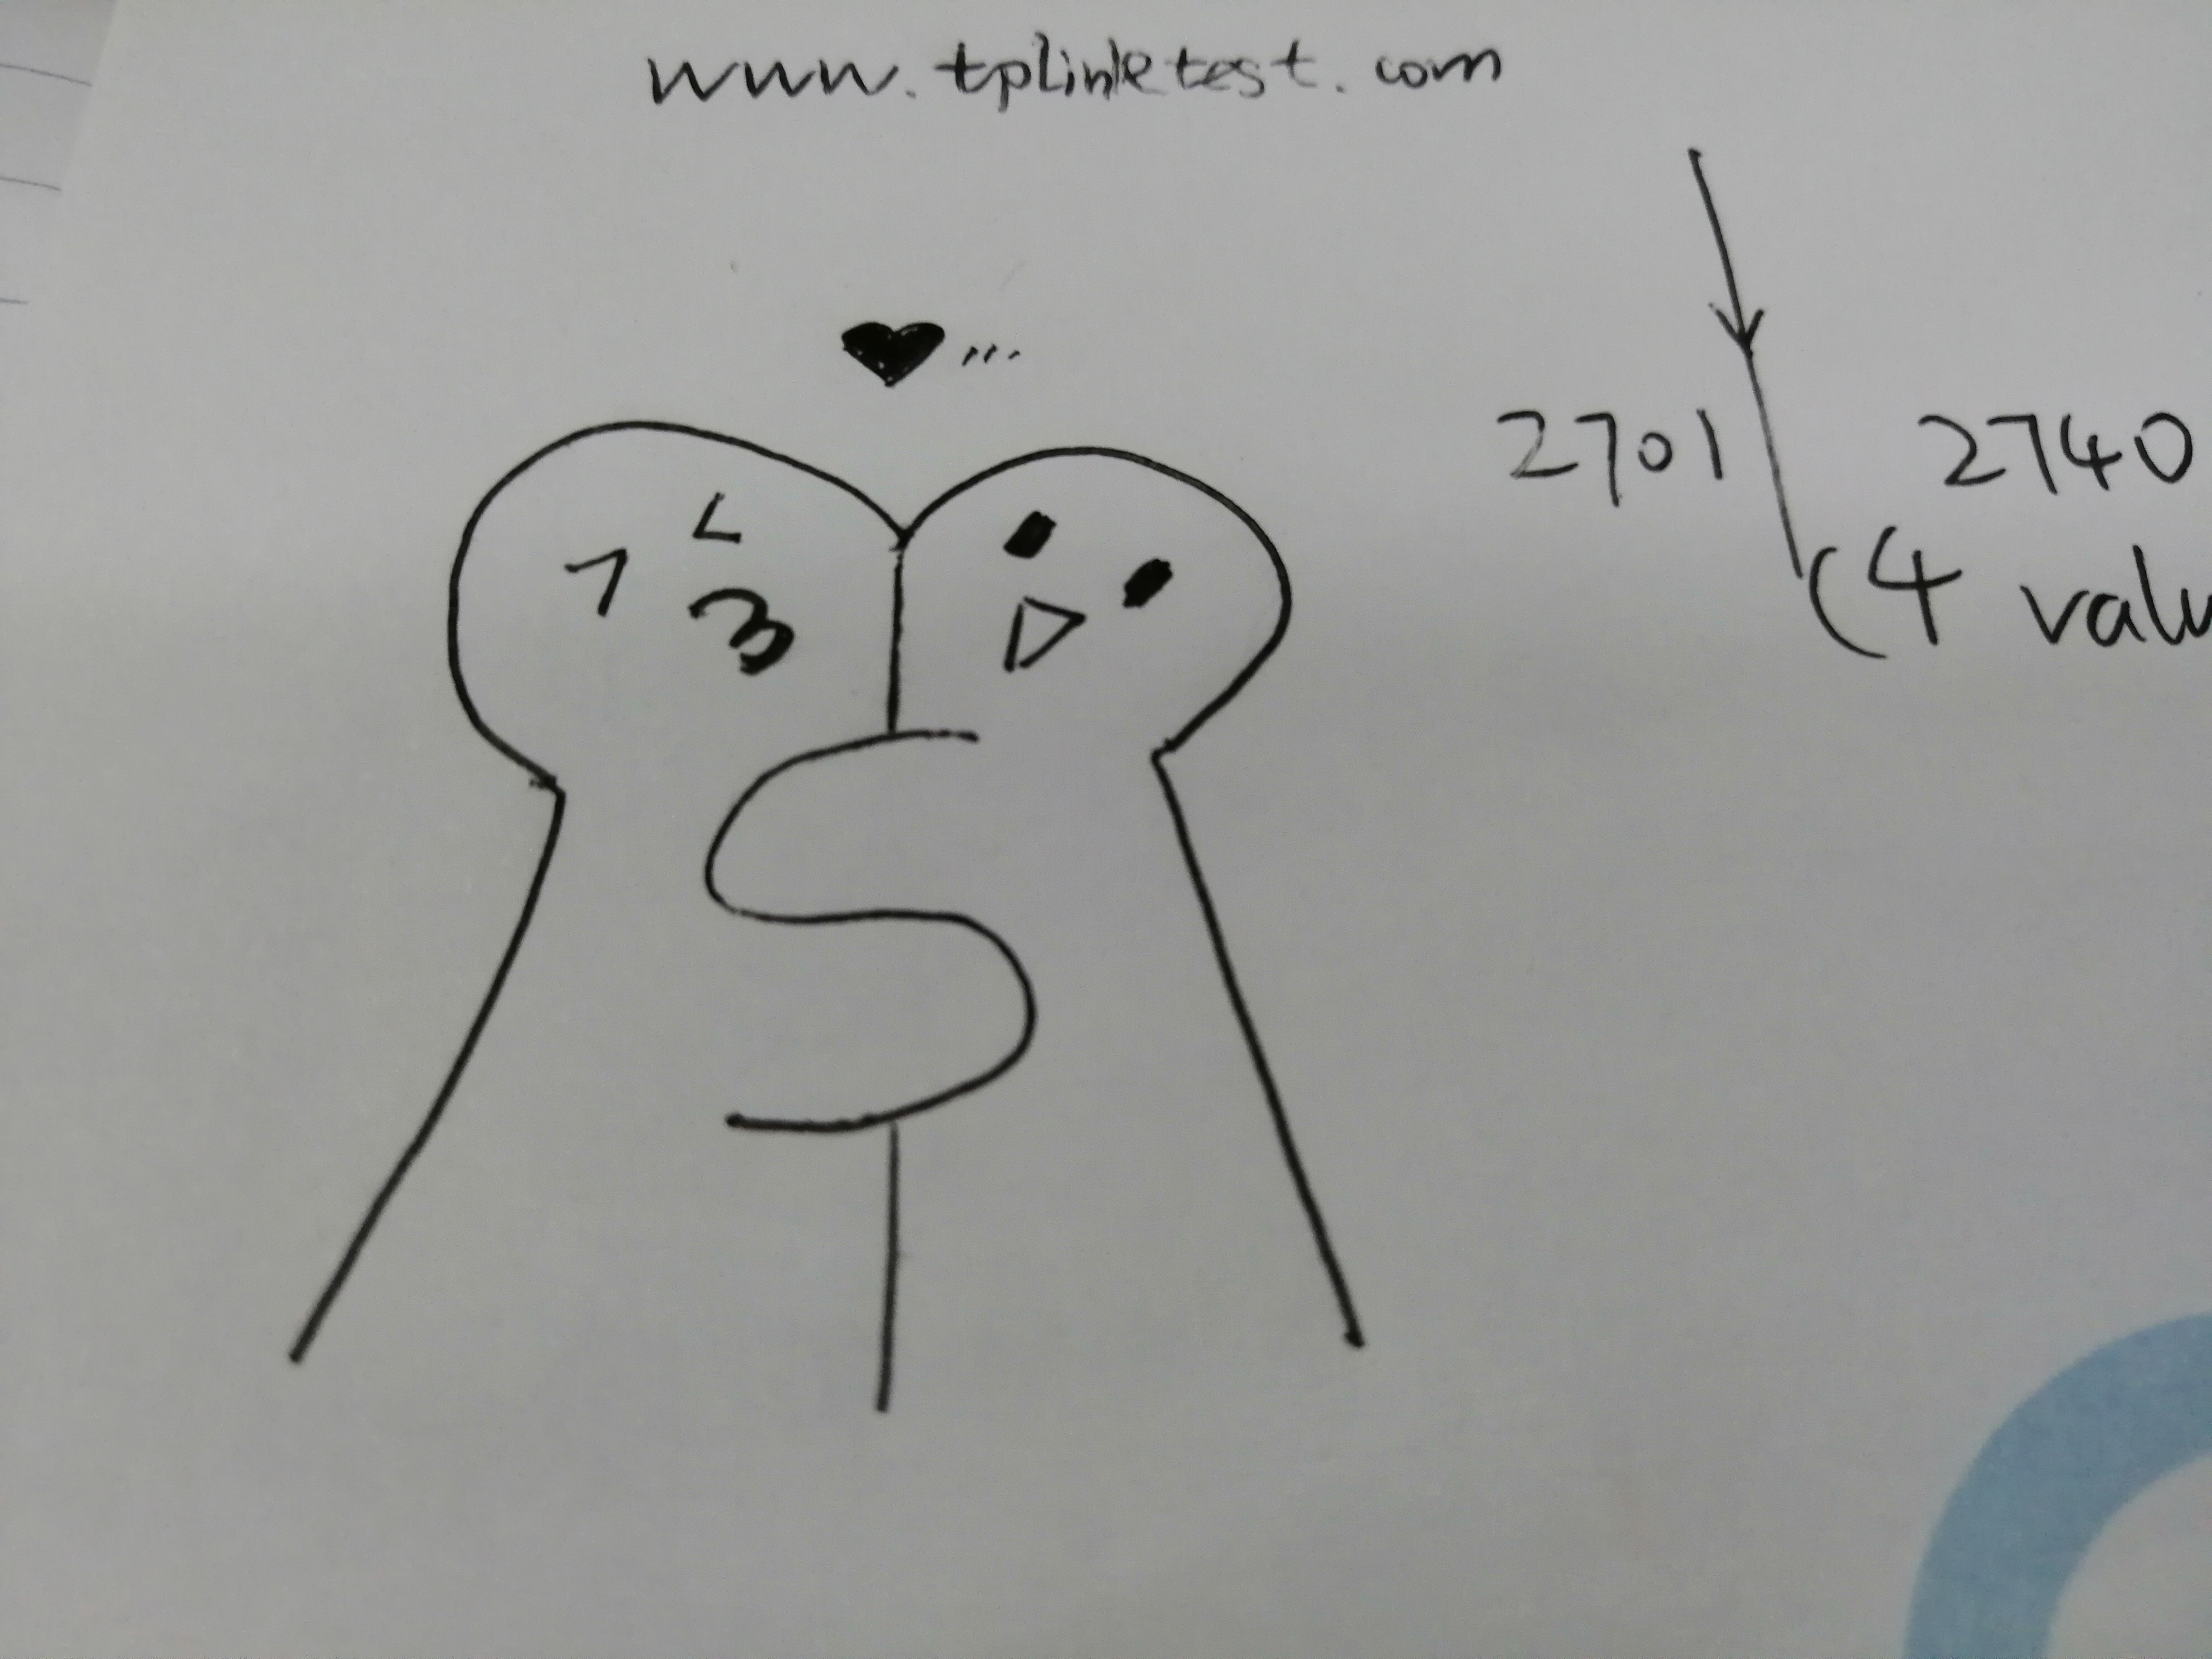 www.tplinktest.com
2701 2740
(4 valu